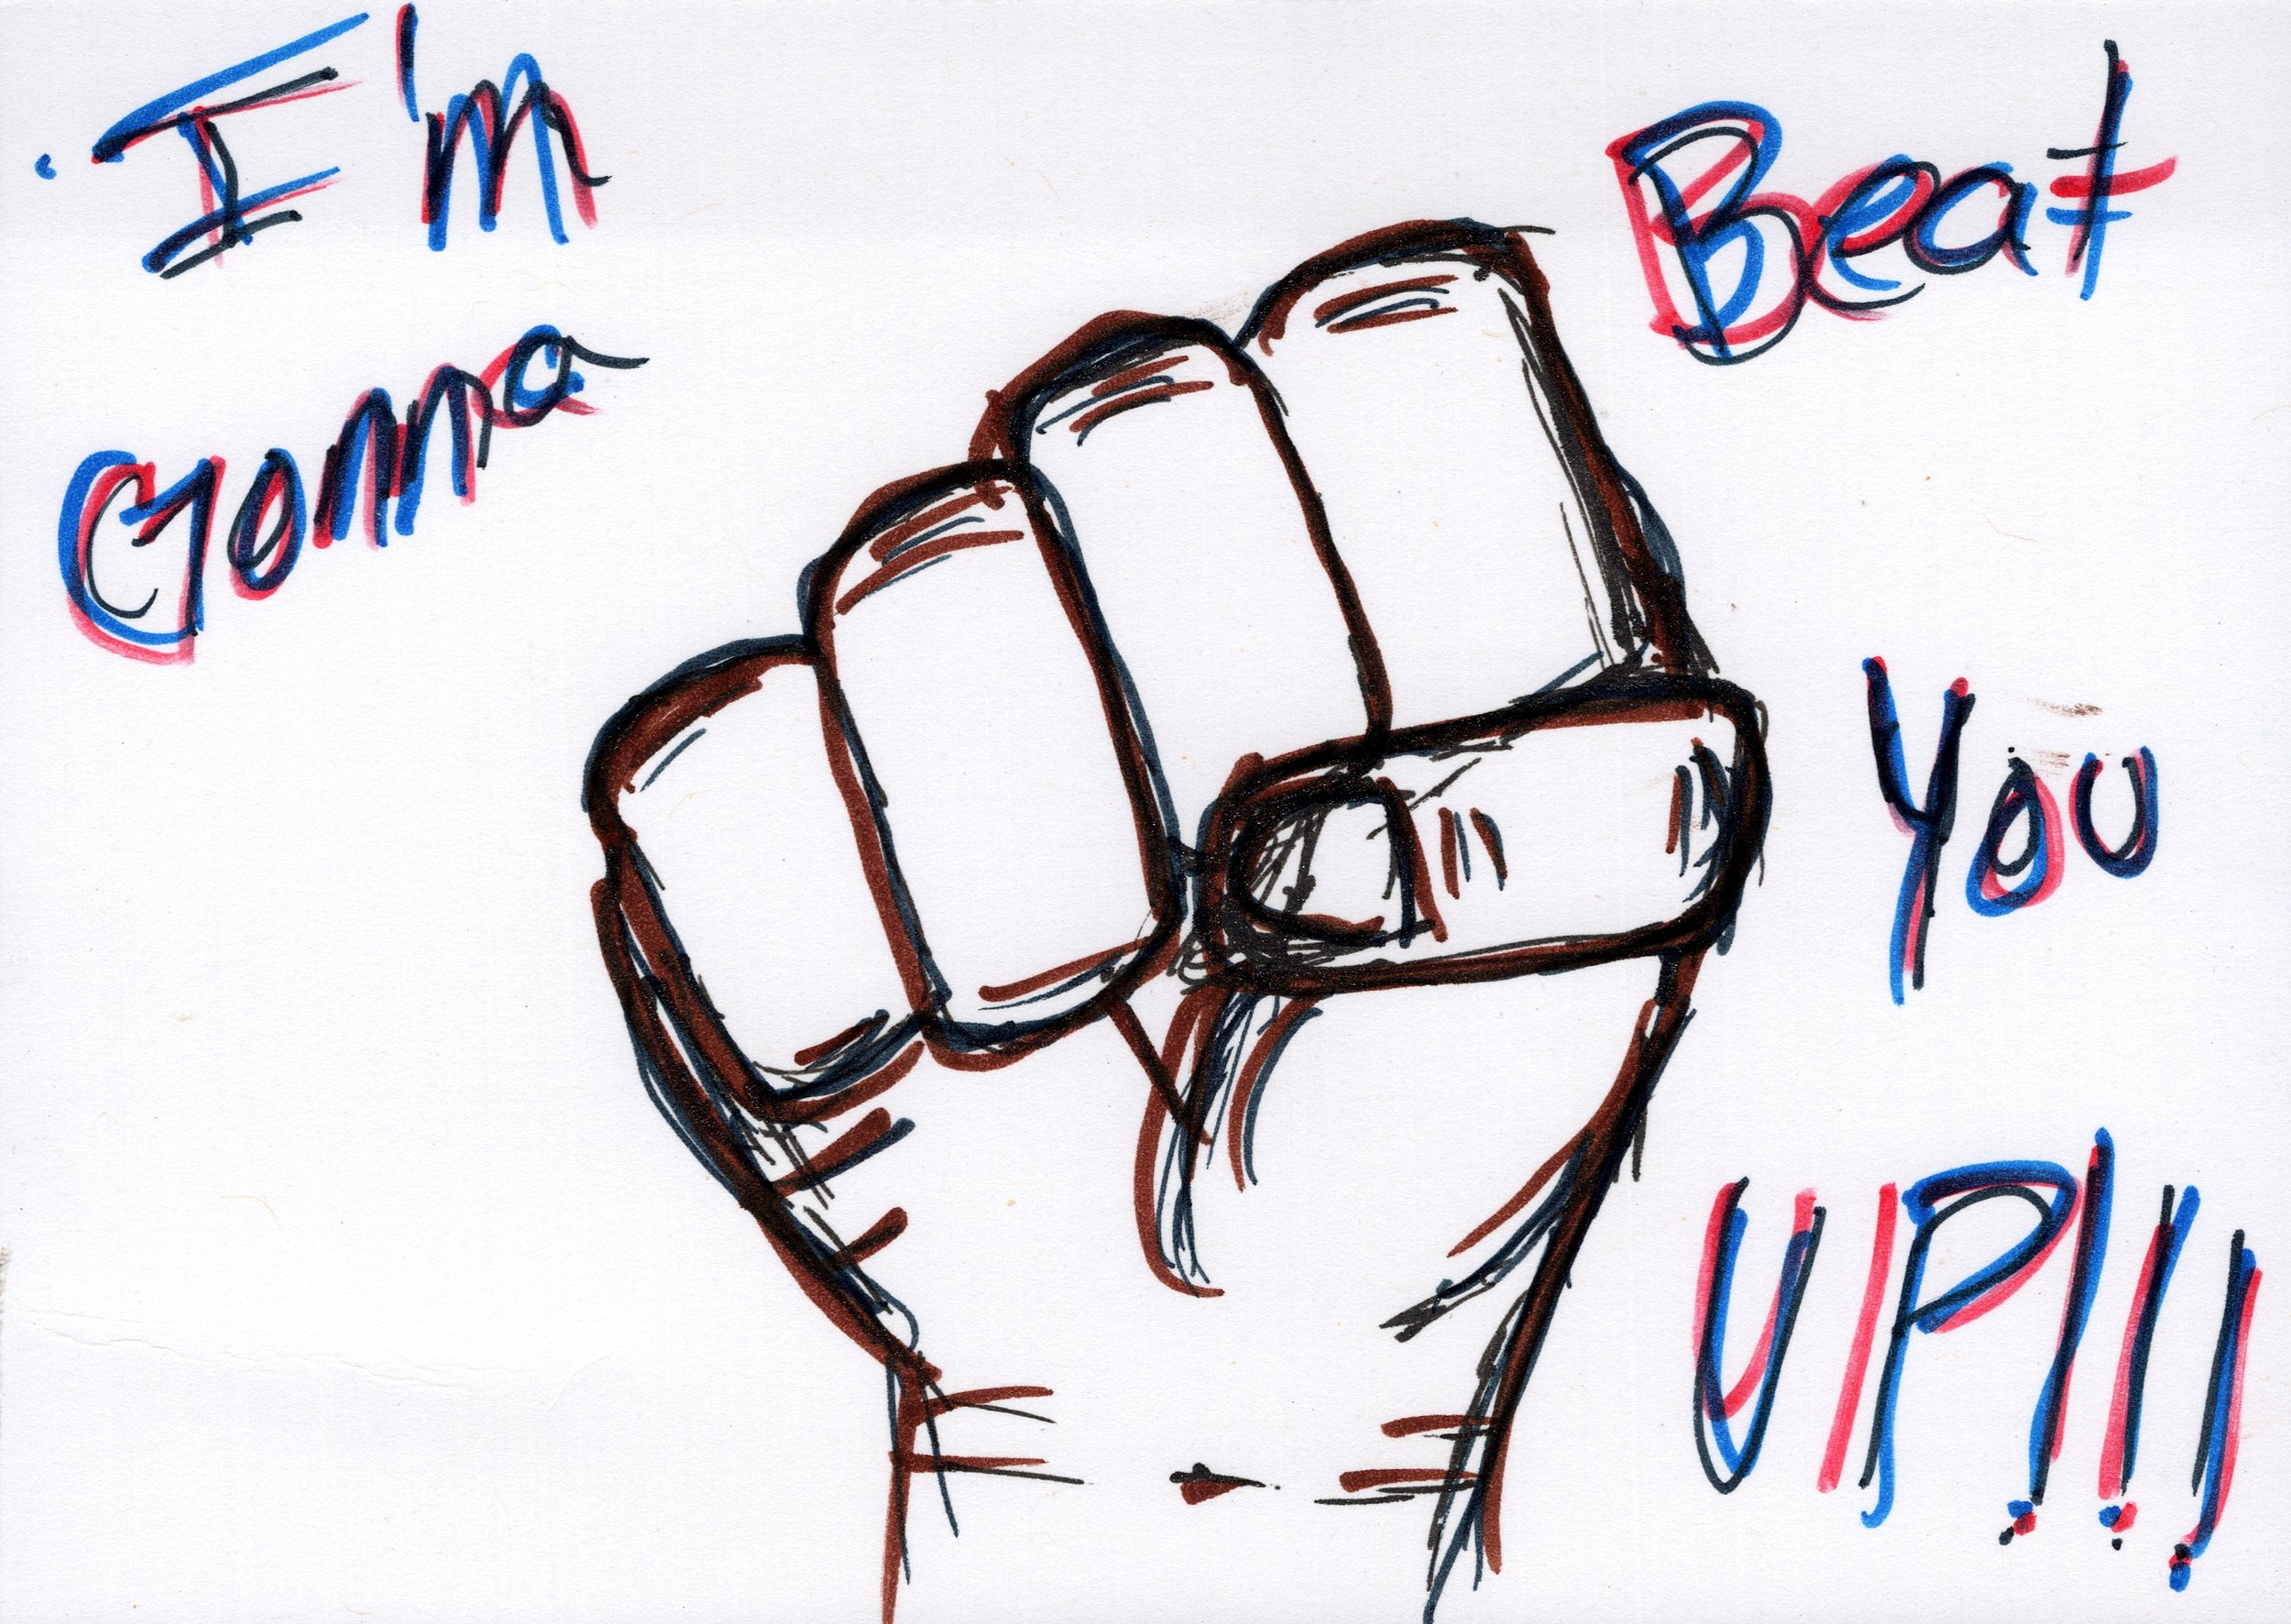 I'm
Gonna
Beat
You
UP!!!